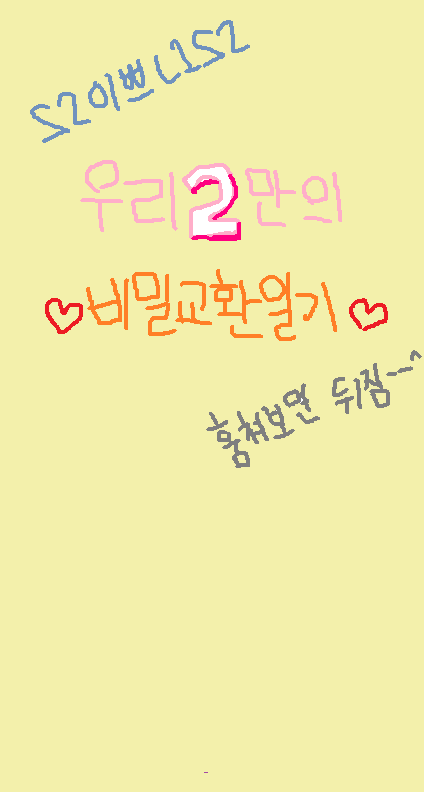 S2이쁘니S2
우리2만의
♡비밀교환일기♡
훔쳐보면 뒤짐ㅡㅡ^